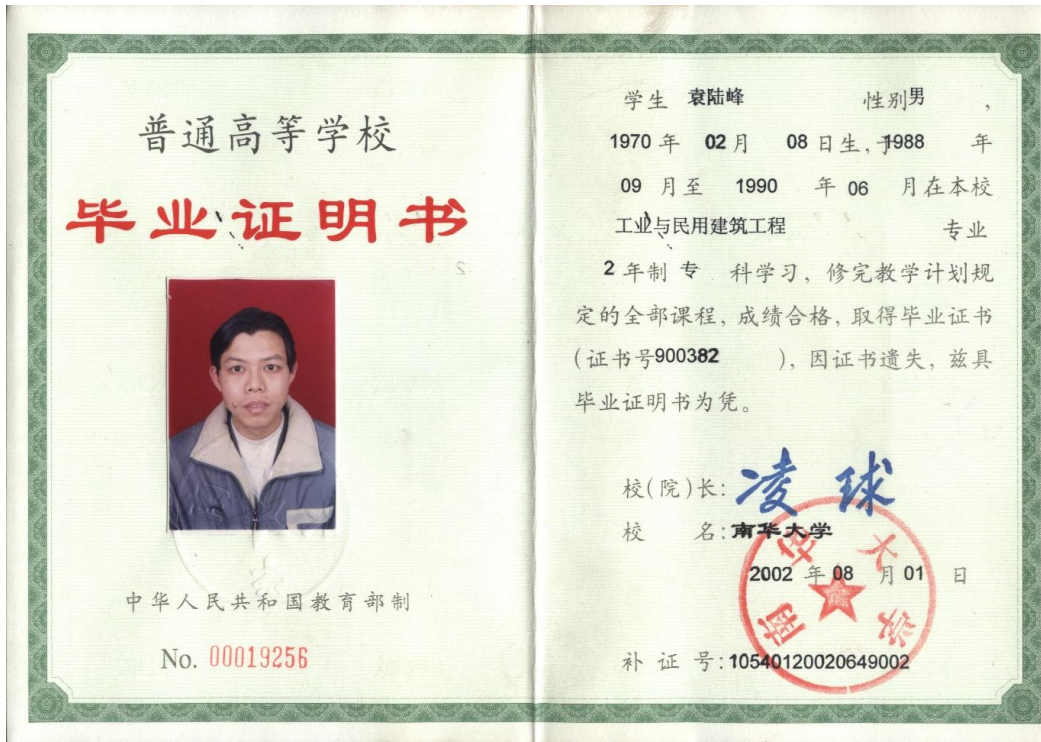 普通高等学校
毕业证明书
中华人民共和国教育部制
No. 00019256
学生 袁陆峰 性别男 ，
1970 年 02 月 08 日生，于1988 年
09 月至 1990 年 06 月在本校
工业与民用建筑工程 专业
2 年制 专 科学习，修完教学计划规
定的全部课程，成绩合格，取得毕业证书
(证书号900382 )，因证书遗失，兹具
毕业证明书为凭。
校(院)长: 凌球
校 名: 南华大学
2002 年 08 月 01 日
南华大学
补 证 号: 10540120020649002